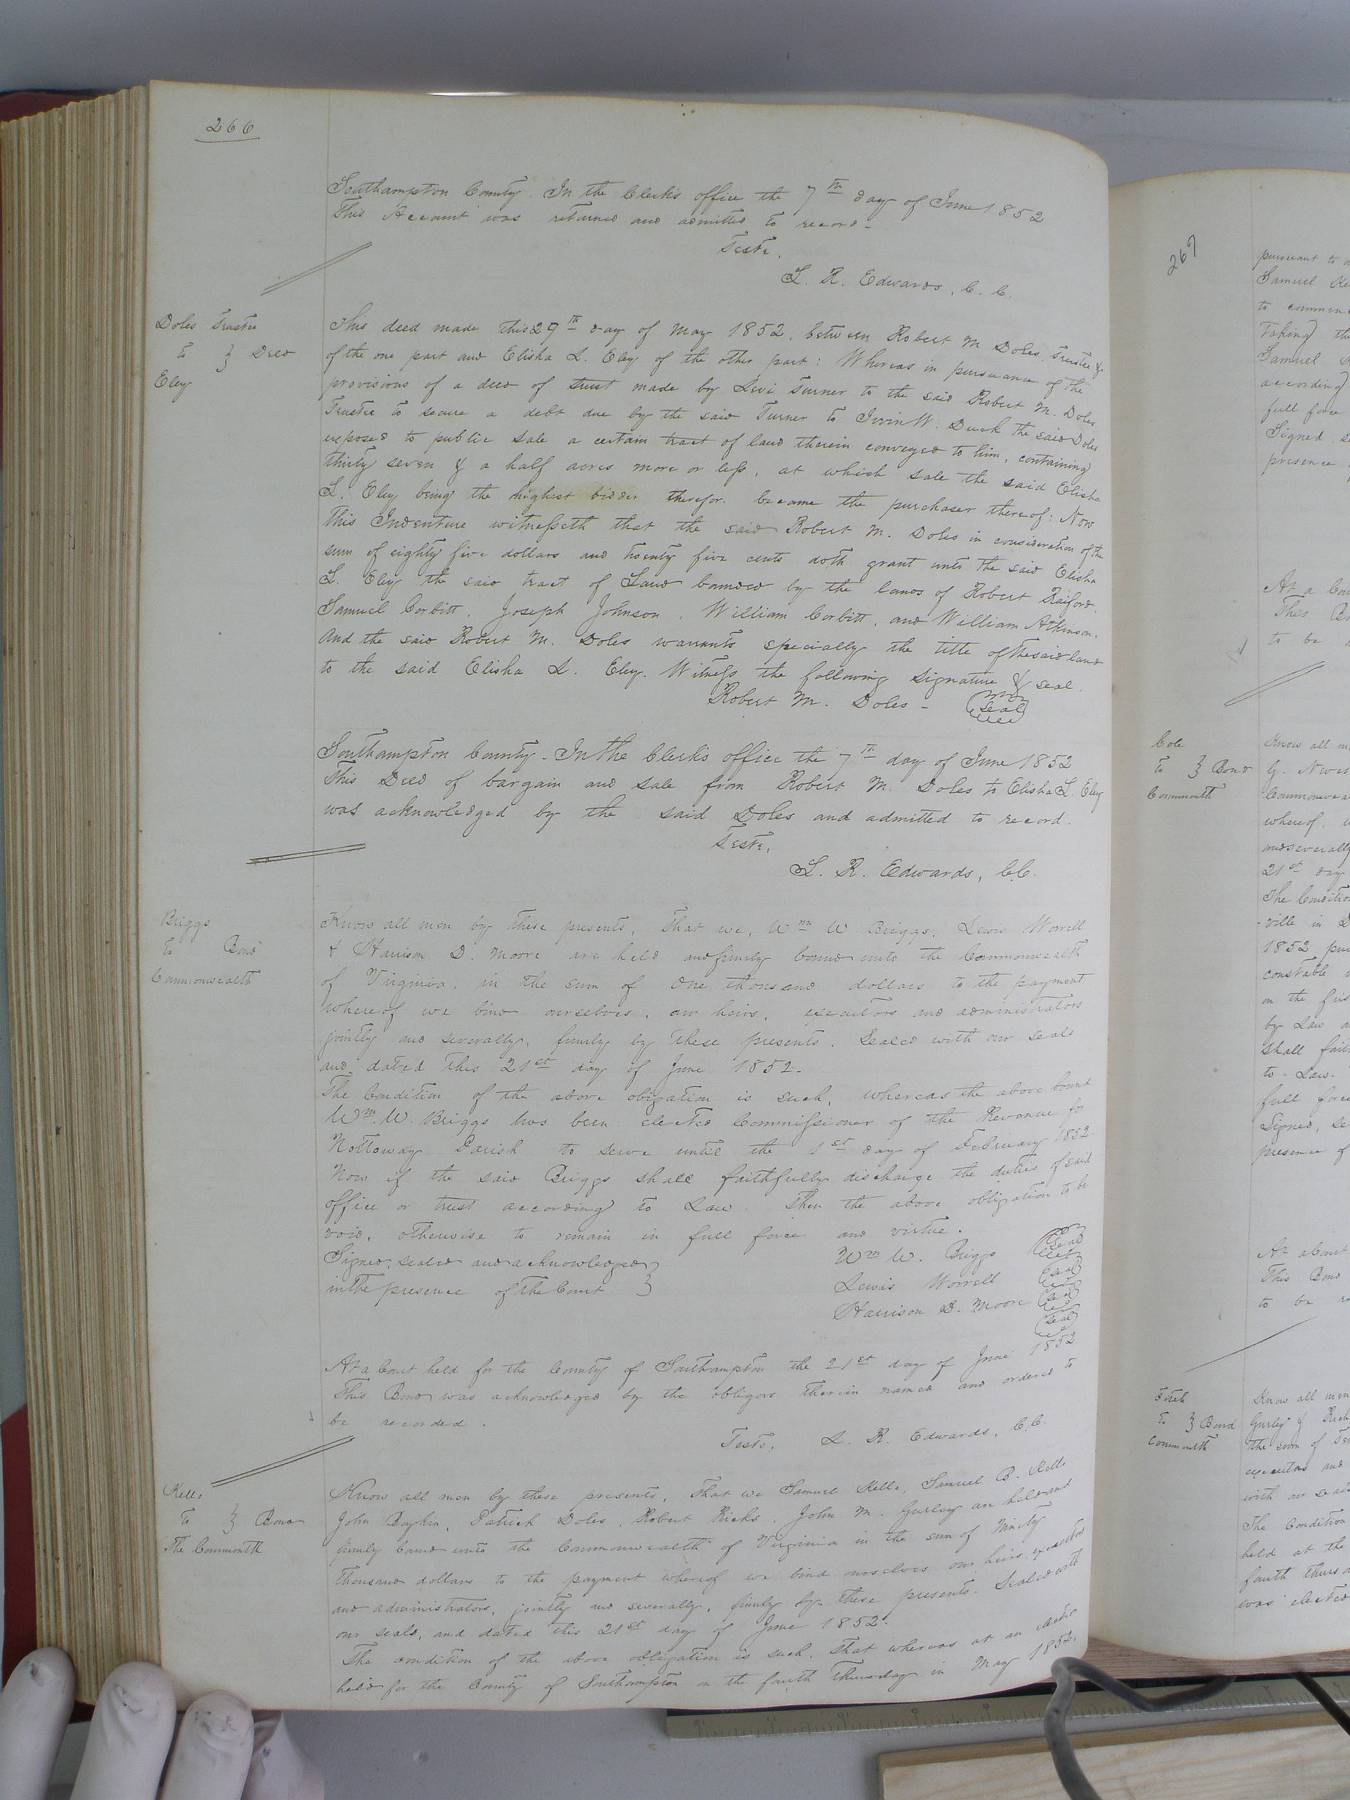 266
Southampton County. In the Clerk's office the 7th day of June 1852
This Account was returned and admitted to record -
Teste,
L. R. Edwards, C. C.
Doles Trustee
to } Deed
Eley
This deed made this 29th day of May 1852, between Robert M. Doles, Trustee &c
of the one part and Elisha L. Eley of the other part: Whereas in pursuance of the
provisions of a deed of trust made by Levi Turner to the said Robert M. Doles
Trustee to secure a debt due by the said Turner to Irvin W. Duck the said Doles
exposed to public sale a certain tract of land therein conveyed to him, containing
thirty seven & a half acres more or less, at which sale the said Elisha
L. Eley being the highest bidder therefor became the purchaser thereof: Now
This Indenture witnesseth that the said Robert M. Doles in consideration of the
sum of eighty five dollars and twenty five cents doth grant unto the said Elisha
L. Eley the said tract of Land bounded by the lands of Robert Raiford,
Samuel Corbitt, Joseph Johnson, William Corbitt, and William Atkinson.
And the said Robert M. Doles warrants specially the title of the said land
to the said Elisha L. Eley. Witness the following signature & seal.
Robert M. Doles - Seal
Southampton County - In the Clerk's office the 7th day of June 1852
This Deed of bargain and sale from Robert M. Doles to Elisha L. Eley
was acknowledged by the said Doles and admitted to record.
Teste,
L. R. Edwards, C.C.
Briggs
to Bond
Commonwealth
Know all men by these presents, That we, Wm W Briggs, Lewis Worrell
& Harrison D. Moore are held and firmly bound unto the Commonwealth
of Virginia, in the sum of One thousand dollars to the payment
whereof we bind ourselves, our heirs, executors and administrators
jointly and severally, firmly by these presents. Sealed with our seals
and dated this 21st day of June 1852.
The Condition of the above obligation is such, whereas the above bound
Wm. W. Briggs has been elected Commissioner of the Revenue for
Nottoway Parish to serve until the 1st day of February 1852
Now if the said Briggs shall faithfully discharge the duties of said
office or trust according to Law. Then the above obligation to be
void, otherwise to remain in full force and virtue.
Signed, sealed and acknowledged }
in the presence of the Court }
Wm W. Briggs Seal
Lewis Worrell Seal
Harrison D. Moore Seal
Seal
At a Court held for the County of Southampton the 21st day of June 1852
This Bond was acknowledged by the obligors therein named and ordered to
be recorded.
Teste, L. R. Edwards, C.C.
Kello
to } Bond
The Commonwlth
Know all men by these presents, That we Samuel Kello, Samuel B. Kello
John Boykin, Patrick Doles, Robert Ricks, John M. Gurley are held and
firmly bound unto the Commonwealth of Virginia in the sum of Ninety
thousand dollars to the payment whereof we bind ourselves our heirs, executors
and administrators, jointly and severally, firmly by these presents. Sealed with
our seals, and dated this 21st day of June 1852.
The condition of the above obligation is such, That whereas at an election
held for the County of Southampton on the fourth Thursday in May 1852,
267
pursuant to
Samuel Ke
to commen
Taking the
Samuel
according
full force
Signed, se
presence
At a Cou
This Bo
to be
Cole
to } Bond
Commonwlth
Know all m
G. New
Commonwea
whereof
and severally
21st day
The Conditio
-ville in
1852 pur
constable
on the firs
by Law
shall fait
to Law.
full forc
Signed, se
presence of
At a Court
This Bond
to be re
to } Bond
Commonwlth
Know all men
Gurley & Rich
the sum of
executors and
with our seals
The Condition
held at the
fourth Thurs
was elected